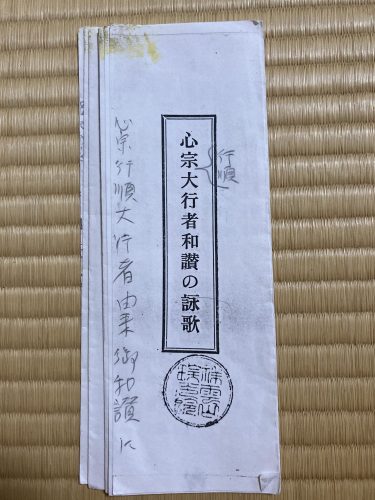 心宗大行者和讃の詠歌
行順
心宗行順大行者由来御和讃に